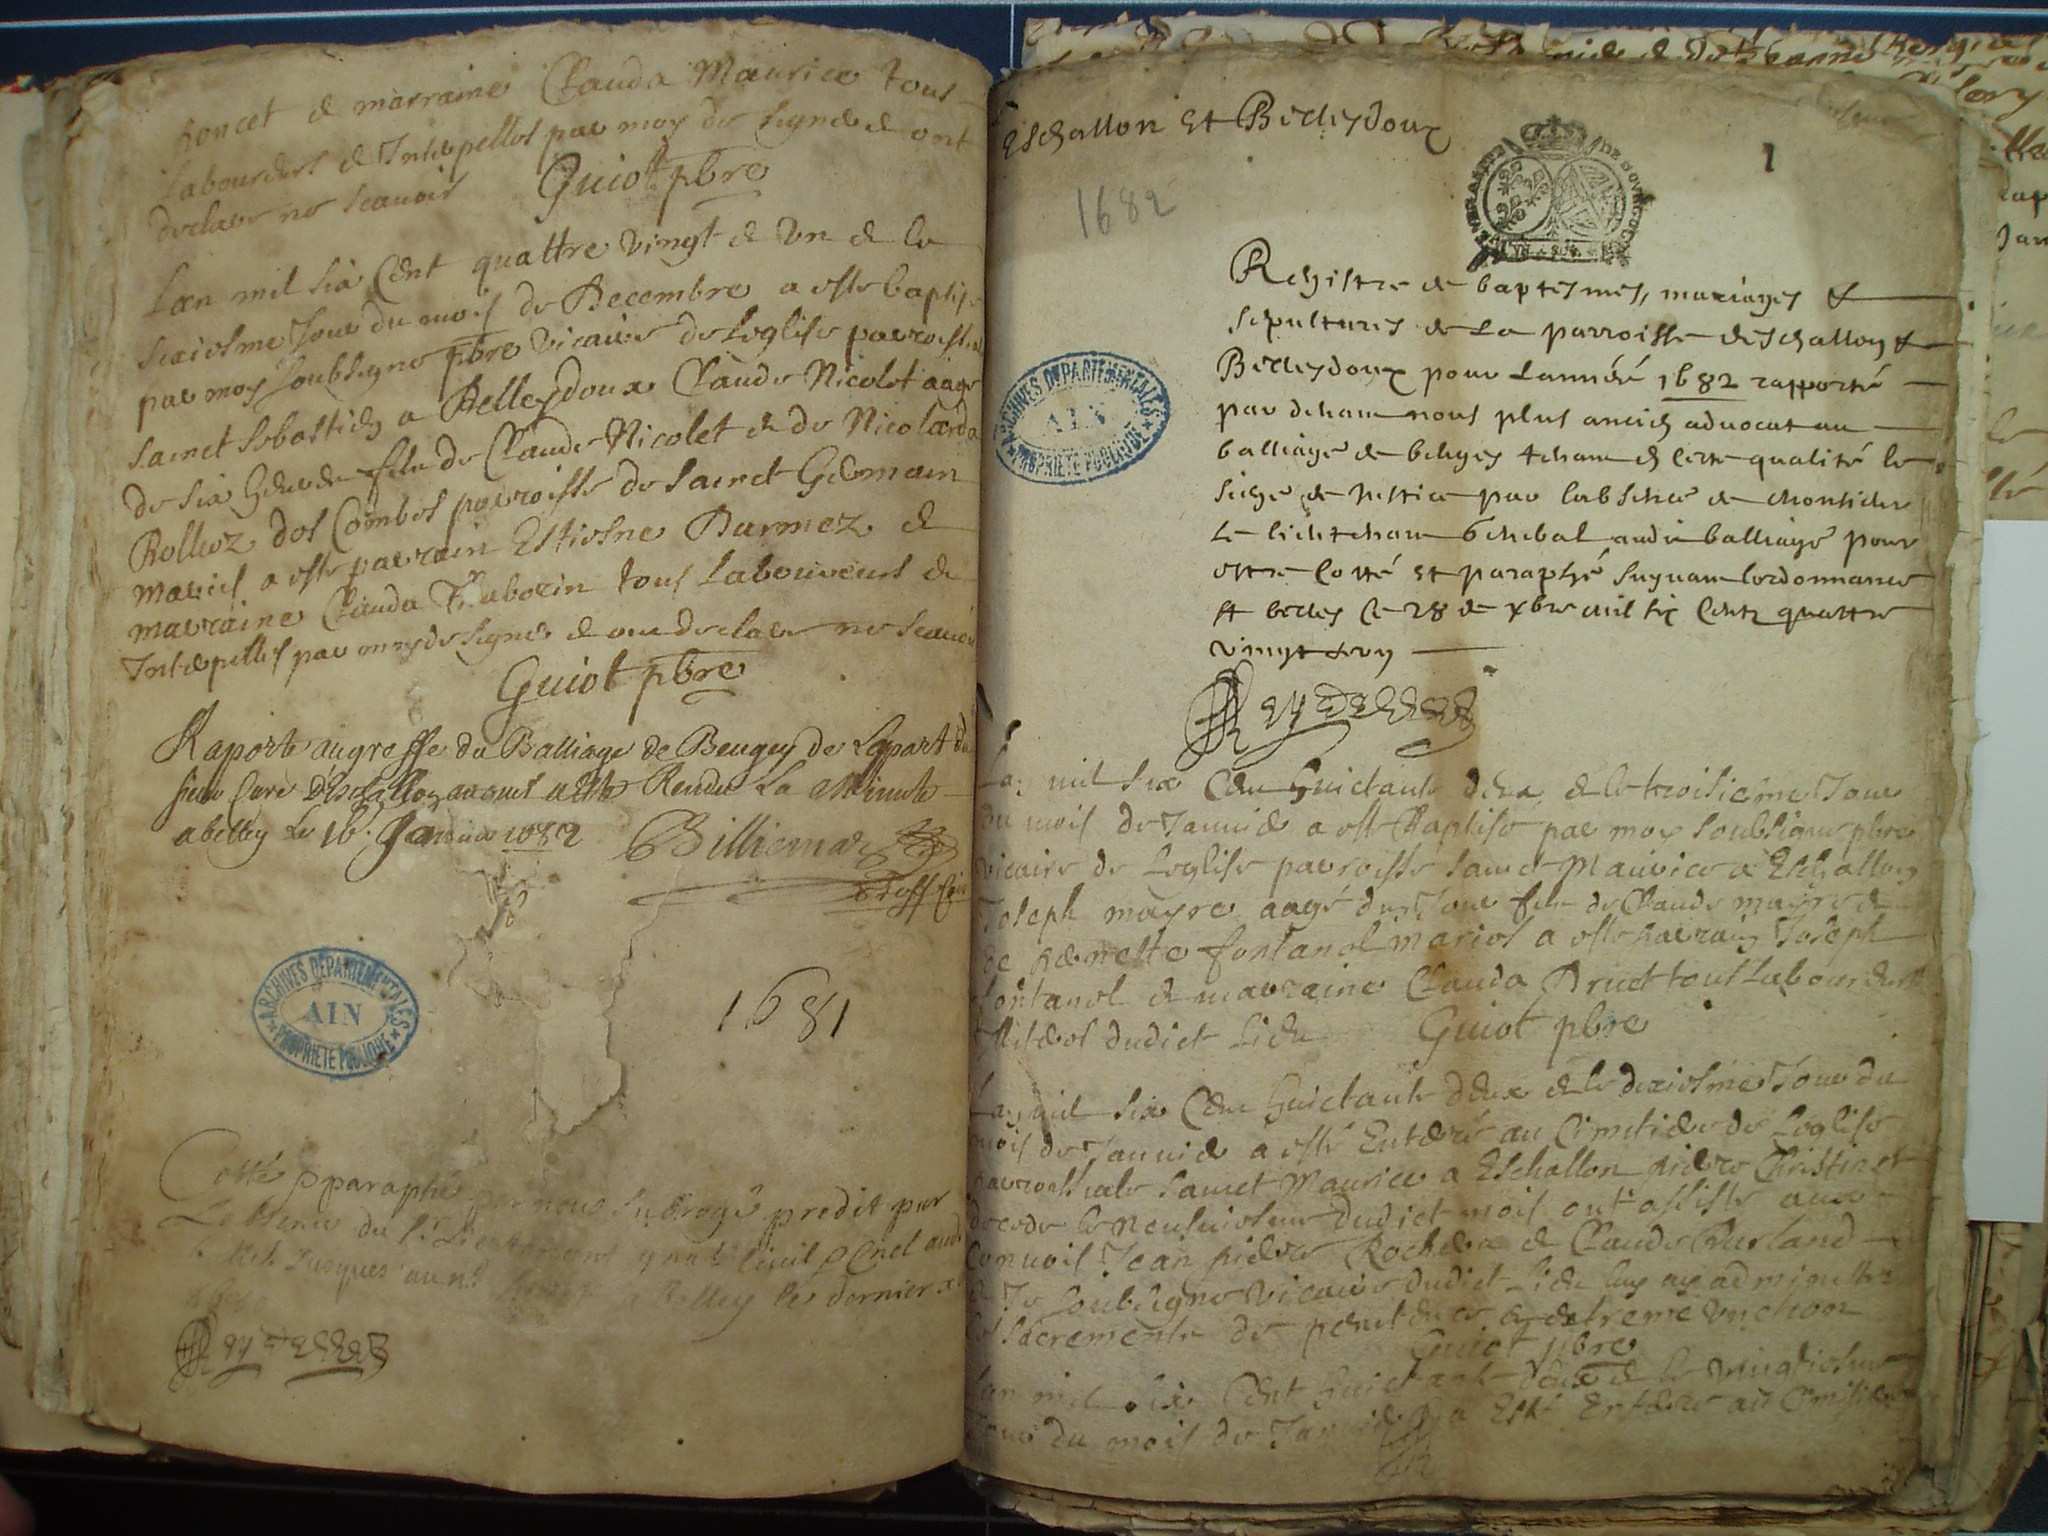 poncet & marraine Clauda Maurice tous
laboureurs & Interpelles par moy de signer & ont
declare ne scavoir Guiot pbre
Lan mil six Cent quattre vingt & un & le
seziesme Jour du mois de Decembre a este baptise
par moy soubsigne pbre vicaire de Leglise parroissial
sainct sebastien a Belleydoux Claude Nicolet aage
de six heures fils de Claude Nicolet & de Nicolarde
Rollioz des Combes parroisse de sainct Germain
maries a este parrain Estiesne Burmez &
marraine Clauda tous Laboureurs &
Interpelles par moy de signer & ont declare ne scavoir
Guiot pbre
Raporte au greffe du Balliage de Beugey de La part du
sieur Cure Deschallon auquel a este Rendu La Minute
a belley Le 16e Janvier 1682
ARCHIVES DEPARTEMENTALES
AIN
PROPRIETE PUBLIQUE
1681
Cotté & paraphé par nous subrogé predit par
Labsence du Sr Lieutenant
jusques au a Belley le dernier
Eschallon Et Belleydoux
1
1682
Registre de baptesmes, mariages &
sepultures de La parroisse deschallon &
Belleydoux pour Lannée 1682 rapporté
par devant nous plus ancien advocat au
balliage de beugey tenant en ceste qualité le
siege de justice par labsence de monsieur
Le lieutenant general audit balliage pour
estre cotté et paraphé suyvant lordonnance
a belley Ce 28 de xbre mil six Cents quattre
vingt & un
Lan mil six Cent huictante deux & le troisieme Jour
du mois de Janvier a este Baptise par moy soubsigne pbre
vicaire de Leglise parroisse sainct Maurice a Eschallon
Joseph mayre aagé dun Jour fils de Claude mayre &
de pernette fontanel maries a este parrain Joseph
fontanel & marraine Clauda Druet tous Laboureurs
dudict Lieu Guiot pbre
Lan mil six Cent huictante deux & le dixiesme Jour du
mois de Janvier a esté Enterré au Cimetiere de Leglise
parroissiale sainct Maurice a Eschallon pierre Christinet
decede le neufviesme dudict mois ont assiste au
Convoit Jean pierre & Claude
& Je soubsigne vicaire dudict Lieu luy ay administre
les sacrements de penitence & extreme unction
Guiot pbre
Lan mil six Cent huictante deux & le vingtiesme
Jour du mois de Janvier a Esté Enterré au Cimetiere